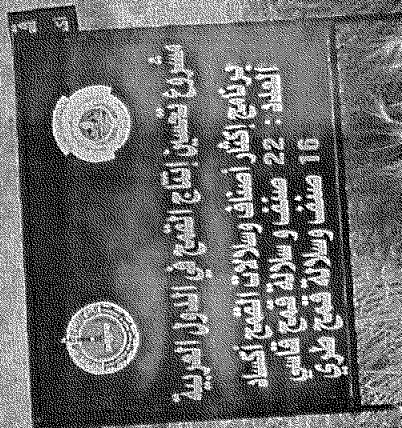 مشروع تحسين إنتاج القمح في الدول العربية
برنامج إكثار أصناف وسلالات القمح أكساد
العدد : 22 صنف وسلالة قمح قاسي
16 صنف وسلالة قمح طري